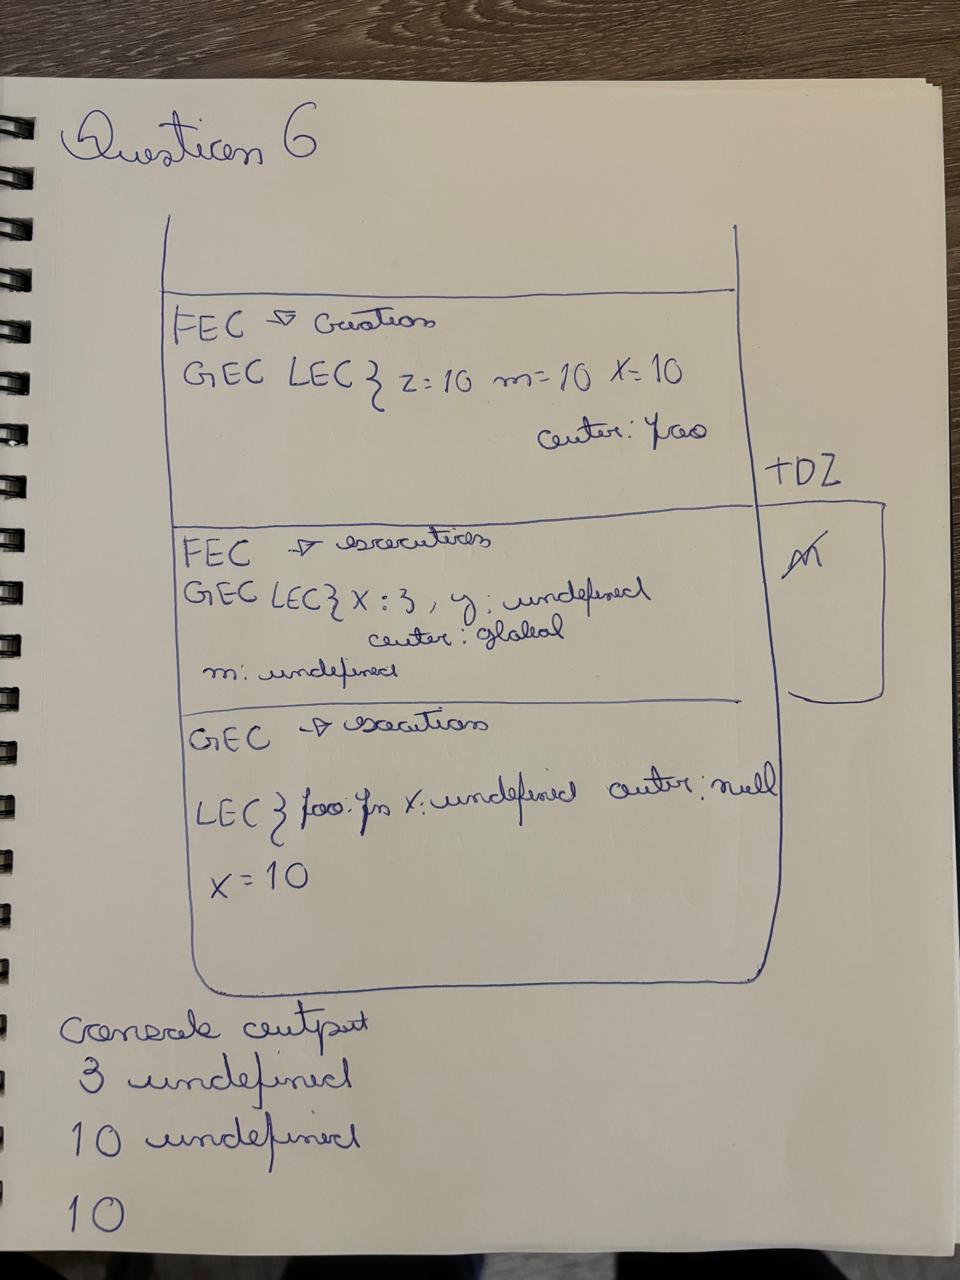 Question 6
FEC → Creation
GEC LEC } z=10 m=10 x=10
outer: foo
TDZ
FEC → execution
m
GEC LEC } x: 3, y: undefined
outer: global
m: undefined
GEC → execution
LEC } foo: fn x: undefined outer: null
x = 10
Console output
3 undefined
10 undefined
10